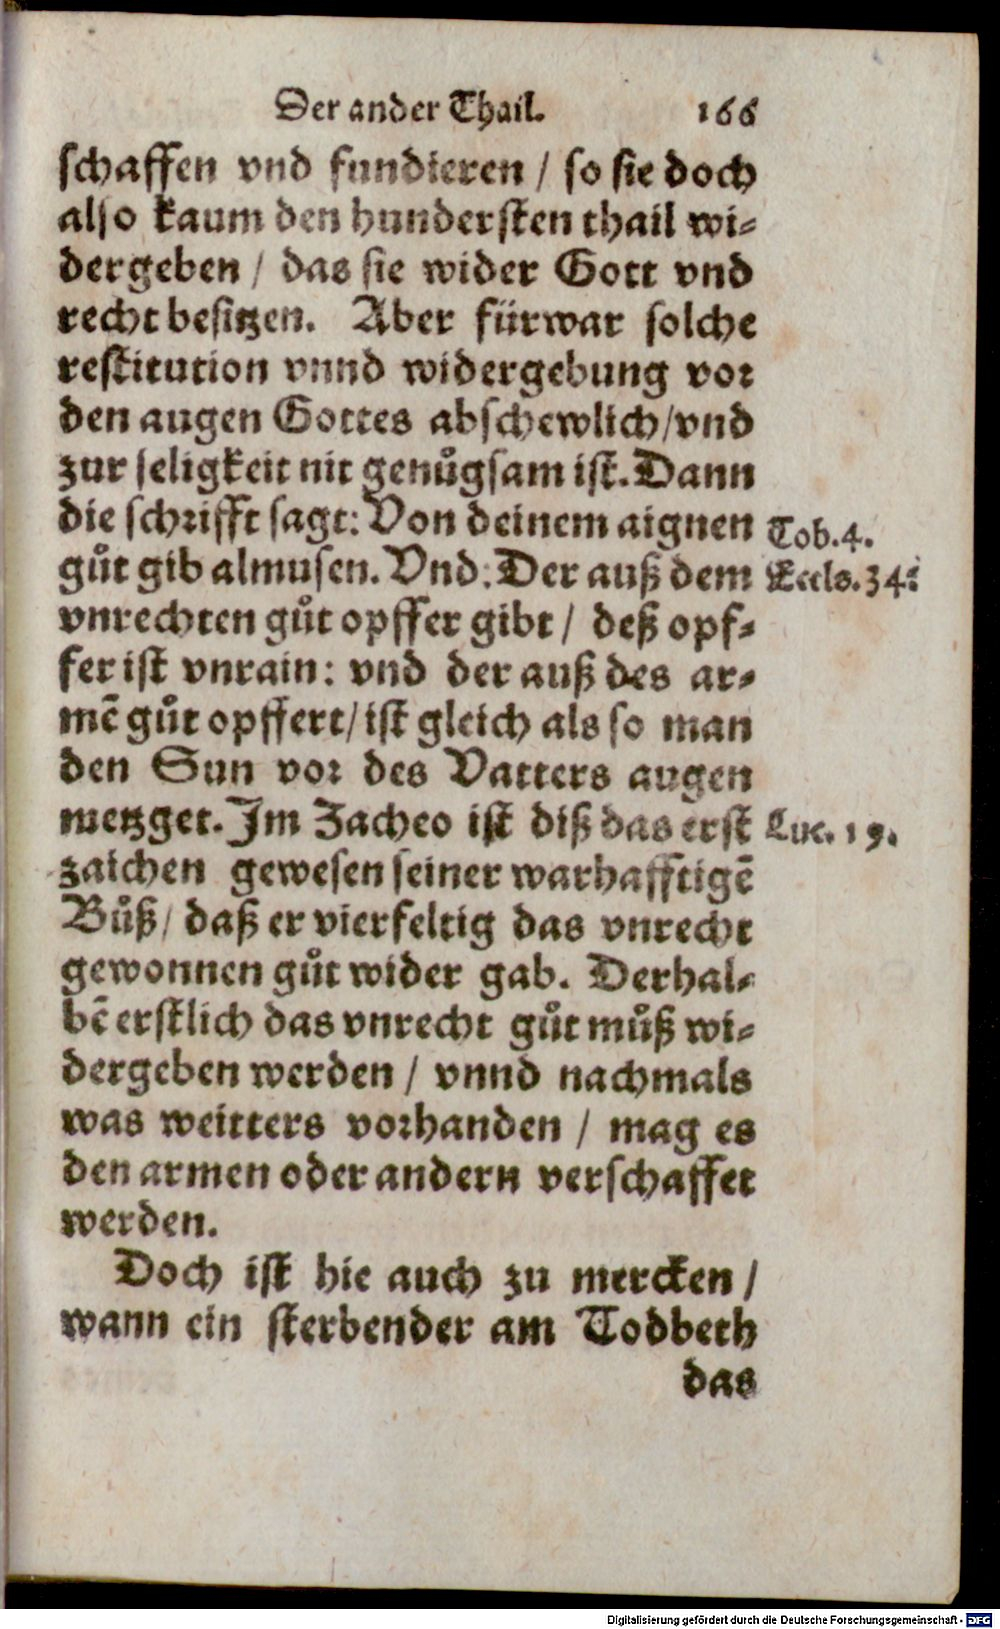 Der ander Thail. 166
schaffen vnd fundieren / so sie doch
also kaum den hundersten thail wi-
dergeben / das sie wider Gott vnd
recht besitzen. Aber fürwar solche
restitution vnnd widergebung vor
den augen Gottes abschewlich / vnd
zur seligkeit nit genůgsam ist. Dann
die schrifft sagt: Von deinem aignen
Tob. 4.
gůt gib almusen. Vnd: Der auß dem
Eccls. 34.
vnrechten gůt opffer gibt / deß opf-
fer ist vnrain: vnd der auß des ar-
mē gůt opffert / ist gleich als so man
den Sun vor des Vatters augen
metzget. Im Zacheo ist diß das erst
Luc. 19.
zaichen gewesen seiner warhafftigē
Bůß / daß er vierfeltig das vnrecht
gewonnen gůt wider gab. Derhal-
bē erstlich das vnrecht gůt můß wi-
dergeben werden / vnnd nachmals
was weitters vorhanden / mag es
den armen oder andern verschaffet
werden.
Doch ist hie auch zu mercken /
wann ein sterbender am Todbeth
das
Digitalisierung gefördert durch die Deutsche Forschungsgemeinschaft - DFG